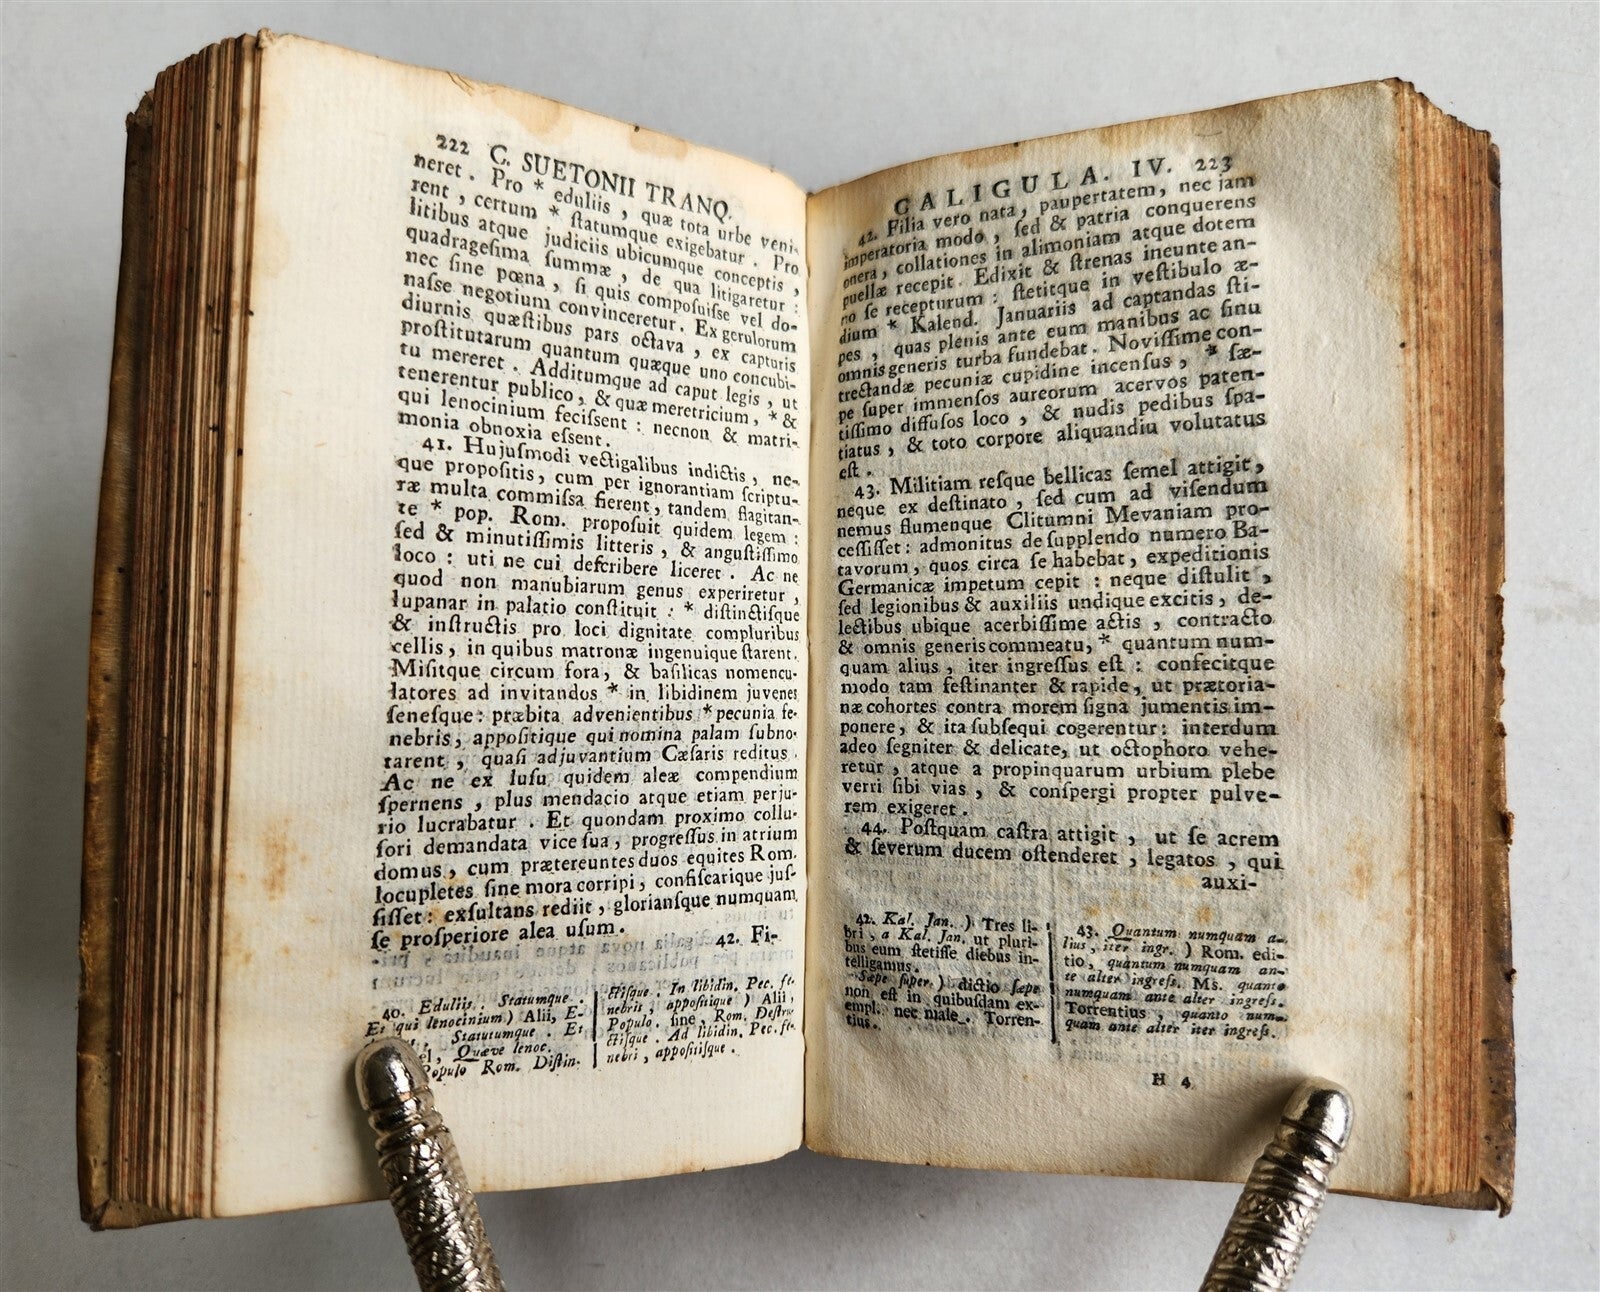 222 C. SUETONII TRANQ.
neret. Pro * eduliis, quæ tota urbe veni-
rent, certum * ſtatumque exigebatur. Pro
litibus atque judiciis ubicumque conceptis,
quadrageſima ſummæ, de qua litigaretur:
nec ſine pœna, ſi quis compoſuiſſe vel do-
naſſe negotium convinceretur. Ex gerulorum
diurnis quæſtibus pars octava, ex capturis
proſtitutarum quantum quæque uno concubi-
tu mereret. Additumque ad caput legis, ut
tenerentur publico, & quæ meretricium, * &
qui lenocinium feciſſent: necnon & matri-
monia obnoxia eſſent.
41. Hujuſmodi vectigalibus indictis, ne-
que propoſitis, cum per ignorantiam ſcriptu-
ræ multa commiſſa fierent, tandem flagitan-
te * pop. Rom. propoſuit quidem legem:
ſed & minutiſſimis litteris, & anguſtiſſimo
loco: uti ne cui deſcribere liceret. Ac ne
quod non manubiarum genus experiretur,
lupanar in palatio conſtituit: * diſtinctiſque
& inſtructis pro loci dignitate compluribus
cellis, in quibus matronæ ingenuique ſtarent.
Miſitque circum fora, & baſilicas nomencu-
latores ad invitandos * in libidinem juvenes
ſeneſque: præbita advenientibus * pecunia fe-
nebris, appoſitique qui nomina palam ſubno-
tarent, quaſi adjuvantium Cæſaris reditus.
Ac ne ex luſu quidem aleæ compendium
ſpernens, plus mendacio atque etiam perju-
rio lucrabatur. Et quondam proximo collu-
ſori demandata vice ſua, progreſſus in atrium
domus, cum prætereuntes duos equites Rom.
locupletes ſine mora corripi, confiſcarique juſ-
ſiſſet: exſultans rediit, glorianſque numquam
ſe proſperiore alea uſum.
42. Fi-
40. Eduliis. Statumque.
Et qui lenocinium) Alii, E-
Statutumque. Et
el, Quæve lenoc.
Populo Rom. Diſtin-
ctiſque. In libidin. Pec. fe-
nebris, appoſitique) Alii,
Populo. ſine, Rom. Deſtru-
ctiſque. Ad libidin. Pec. fe-
nebri, appoſitiſque.
CALIGULA. IV. 223
42. Filia vero nata, paupertatem, nec jam
imperatoria modo, ſed & patria conquerens
onera, collationes in alimoniam atque dotem
puellæ recepit. Edixit & ſtrenas ineunte an-
no ſe recepturum: ſtetitque in veſtibulo æ-
dium * Kalend. Januariis ad captandas ſti-
pes, quas plenis ante eum manibus ac ſinu
omnis generis turba fundebat. Noviſſime con-
trectandæ pecuniæ cupidine incenſus, * ſæ-
pe ſuper immenſos aureorum acervos paten-
tiſſimo diffuſos loco, & nudis pedibus ſpa-
tiatus, & toto corpore aliquandiu volutatus
eſt.
43. Militiam reſque bellicas ſemel attigit,
neque ex deſtinato, ſed cum ad viſendum
nemus flumenque Clitumni Mevaniam pro-
ceſſiſſet: admonitus de ſupplendo numero Ba-
tavorum, quos circa ſe habebat, expeditionis
Germanicæ impetum cepit: neque diſtulit,
ſed legionibus & auxiliis undique excitis, de-
lectibus ubique acerbiſſime actis, contracto
& omnis generis commeatu, * quantum num-
quam alius, iter ingreſſus eſt: confecitque
modo tam feſtinanter & rapide, ut prætoria-
næ cohortes contra morem ſigna jumentis im-
ponere, & ita ſubſequi cogerentur: interdum
adeo ſegniter & delicate, ut octophoro vehe-
retur, atque a propinquarum urbium plebe
verri ſibi vias, & conſpergi propter pulve-
rem exigeret.
44. Poſtquam caſtra attigit, ut ſe acrem
& ſeverum ducem oſtenderet, legatos, qui
auxi-
42. Kal. Jan. ) Tres li-
bri, a Kal. Jan. ut pluri-
bus eum ſtetiſſe diebus in-
telligamus.
Sæpe ſuper. ) dictio ſæpe
non eſt in quibuſdam ex-
empl. nec male. Torren-
tius.
43. Quantum numquam a-
lius, iter ingr. ) Rom. edi-
tio, quantum numquam an-
te alter ingreſſ. Ms. quanto
numquam ante alter ingreſſ.
Torrentius, quanto num-
quam ante alter iter ingreſſ.
H 4